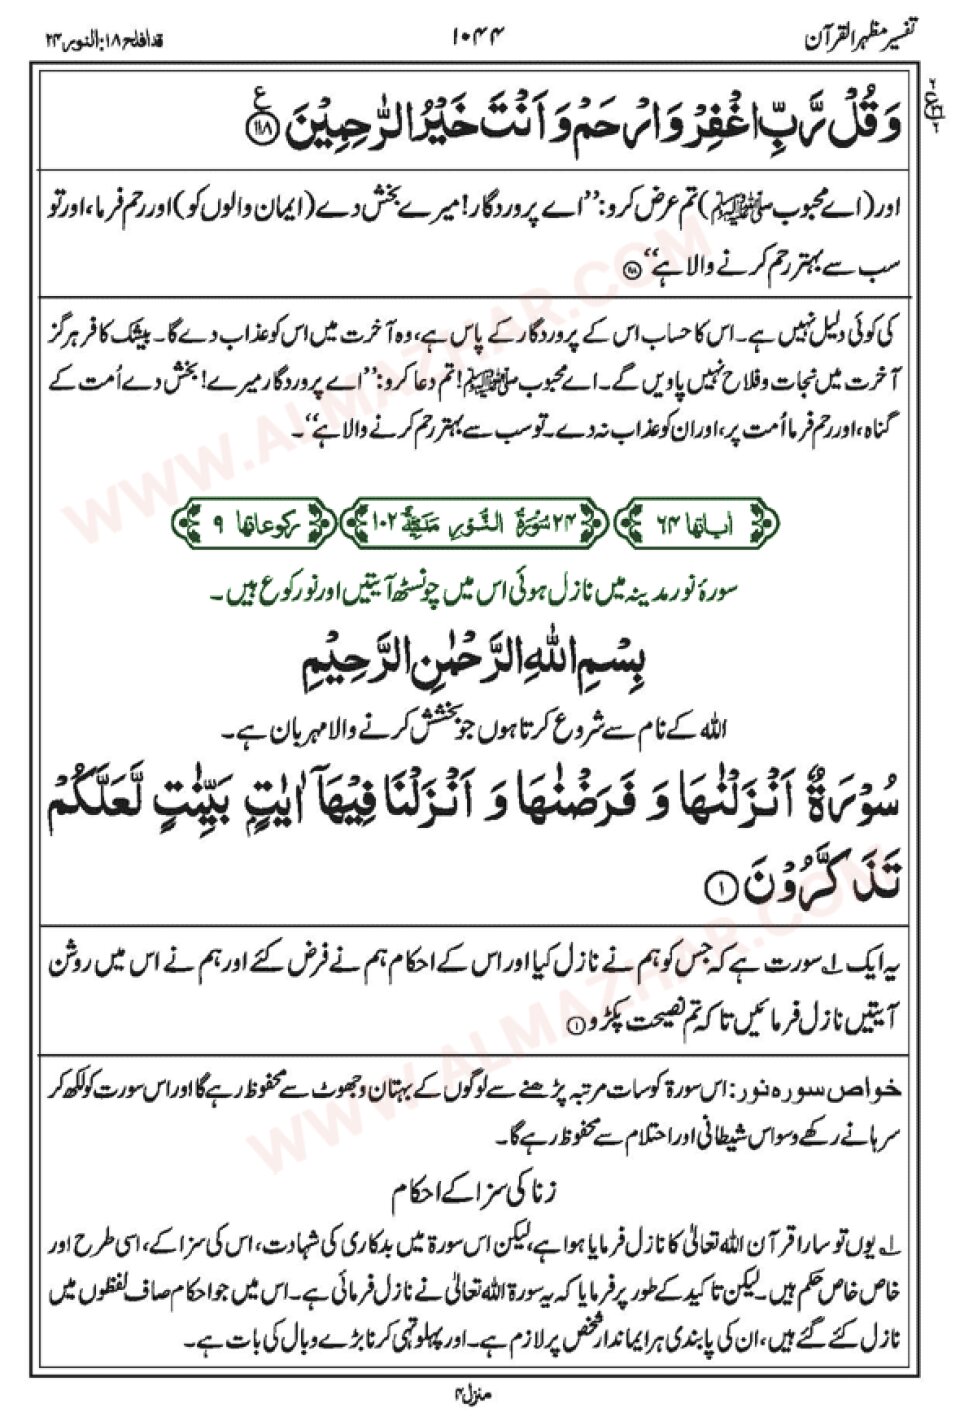 تفسیر مظہر القرآن
۱۰۴۴
قد افلح ۱۸: النور ۲۴
وَ قُلْ رَّبِّ اغْفِرْ وَ ارْحَمْ وَ اَنْتَ خَیْرُ الرّٰحِمِیْنَ ۝۱۱۸ ع
اور (اے محبوب ﷺ) تم عرض کرو: ’’اے پروردگار! میرے بخش دے (ایمان والوں کو) اور رحم فرما، اور تو
سب سے بہتر رحم کرنے والا ہے‘‘ ۝۱۱۸
کی کوئی دلیل نہیں ہے۔ اس کا حساب اس کے پروردگار کے پاس ہے، وہ آخرت میں اس کو عذاب دے گا۔ بیشک کافر ہرگز
آخرت میں نجات و فلاح نہیں پاویں گے۔ اے محبوب ﷺ! تم دعا کرو: ’’اے پروردگار میرے! بخش دے اُمت کے
گناہ، اور رحم فرما اُمت پر، اور ان کو عذاب نہ دے۔ تو سب سے بہتر رحم کرنے والا ہے‘‘۔
اٰیاتها ۶۴
۲۴ سُوْرَةُ النُّوْرِ مَدَنِیَّةٌ ۱۰۲
رکوعاتها ۹
سورۂ نور مدینہ میں نازل ہوئی اس میں چونسٹھ آیتیں اور نو رکوع ہیں۔
بِسْمِ اللّٰهِ الرَّحْمٰنِ الرَّحِیْمِ
اللہ کے نام سے شروع کرتا ہوں جو بخشش کرنے والا مہربان ہے۔
سُوْرَةٌ اَنْزَلْنٰهَا وَ فَرَضْنٰهَا وَ اَنْزَلْنَا فِیْهَاۤ اٰیٰتٍۭ بَیِّنٰتٍ لَّعَلَّكُمْ
تَذَكَّرُوْنَ ۝۱
یہ ایک ۱ سورت ہے کہ جس کو ہم نے نازل کیا اور اس کے احکام ہم نے فرض کئے اور ہم نے اس میں روشن
آیتیں نازل فرمائیں تاکہ تم نصیحت پکڑو ۝۱
خواص سورہ نور: اس سورۃ کو سات مرتبہ پڑھنے سے لوگوں کے بہتان و جھوٹ سے محفوظ رہے گا اور اس سورت کو لکھ کر
سرہانے رکھے وسواس شیطانی اور احتلام سے محفوظ رہے گا۔
زنا کی سزا کے احکام
۱ یوں تو سارا قرآن اللہ تعالیٰ کا نازل فرمایا ہوا ہے، لیکن اس سورۃ میں بدکاری کی شہادت، اس کی سزا کے، اسی طرح اور
خاص خاص حکم ہیں۔ لیکن تاکید کے طور پر فرمایا کہ یہ سورۃ اللہ تعالیٰ نے نازل فرمائی ہے۔ اس میں جو احکام صاف لفظوں میں
نازل کئے گئے ہیں، ان کی پابندی ہر ایماندار شخص پر لازم ہے۔ اور پہلو تہی کرنا بڑے وبال کی بات ہے۔
منزل ۴
WWW.ALMAZHAR.COM
WWW.ALMAZHAR.COM